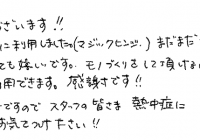 ざいます!!
に利用しました。(マジックヒンジ.) まだまだ
ても嬉しいです。モノづくりをして頂ける
用できます。感謝です!!
ですので スタッフの皆さま 熱中症に
お気をつけ下さい!!